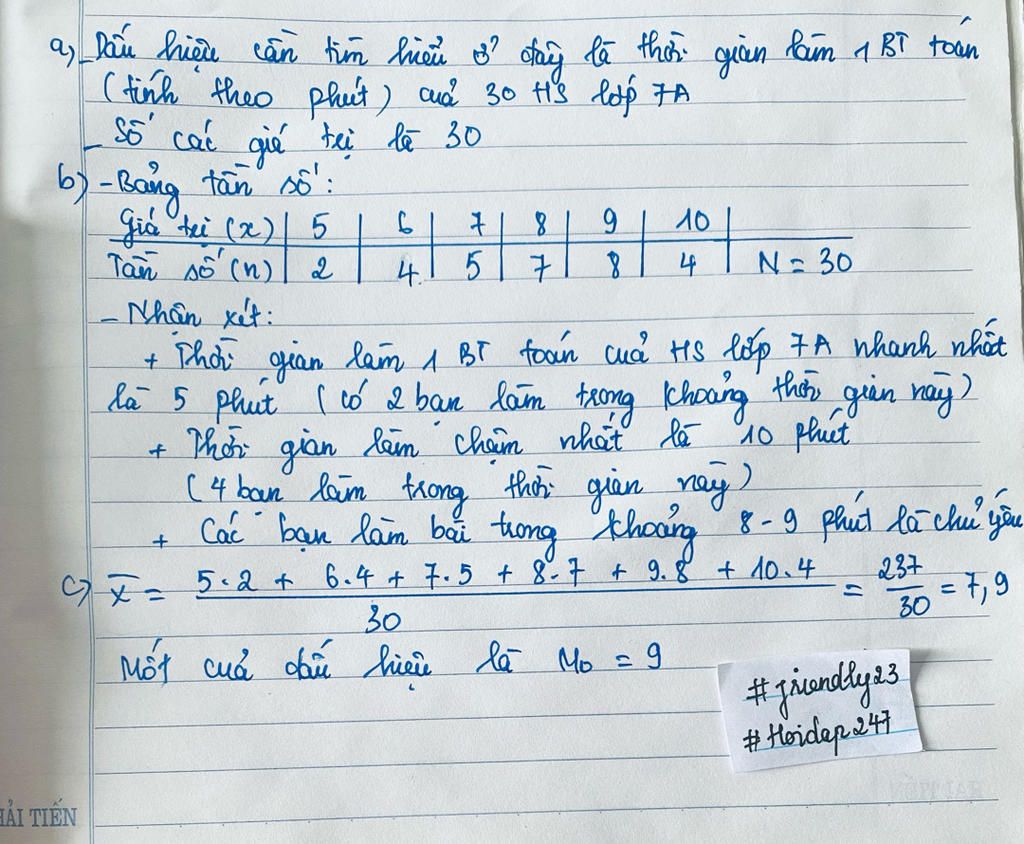 a) - Dấu hiệu cần tìm hiểu ở đây là thời gian làm 1 BT toán
(tính theo phút) của 30 HS lớp 7A
- Số các giá trị là 30
b) - Bảng tần số:
Giá trị (x) | 5 | 6 | 7 | 8 | 9 | 10 |
Tần số (n) | 2 | 4 | 5 | 7 | 8 | 4 | N = 30
- Nhận xét:
+ Thời gian làm 1 BT toán của HS lớp 7A nhanh nhất
là 5 phút (có 2 bạn làm trong khoảng thời gian này)
+ Thời gian làm chậm nhất là 10 phút
(4 bạn làm trong thời gian này)
+ Các bạn làm bài trong khoảng 8 - 9 phút là chủ yếu
c) x̄ = (5.2 + 6.4 + 7.5 + 8.7 + 9.8 + 10.4)/30 = 237/30 = 7,9
Mốt của dấu hiệu là M₀ = 9
#friendly23
#Hoidap247
HẢI TIẾN